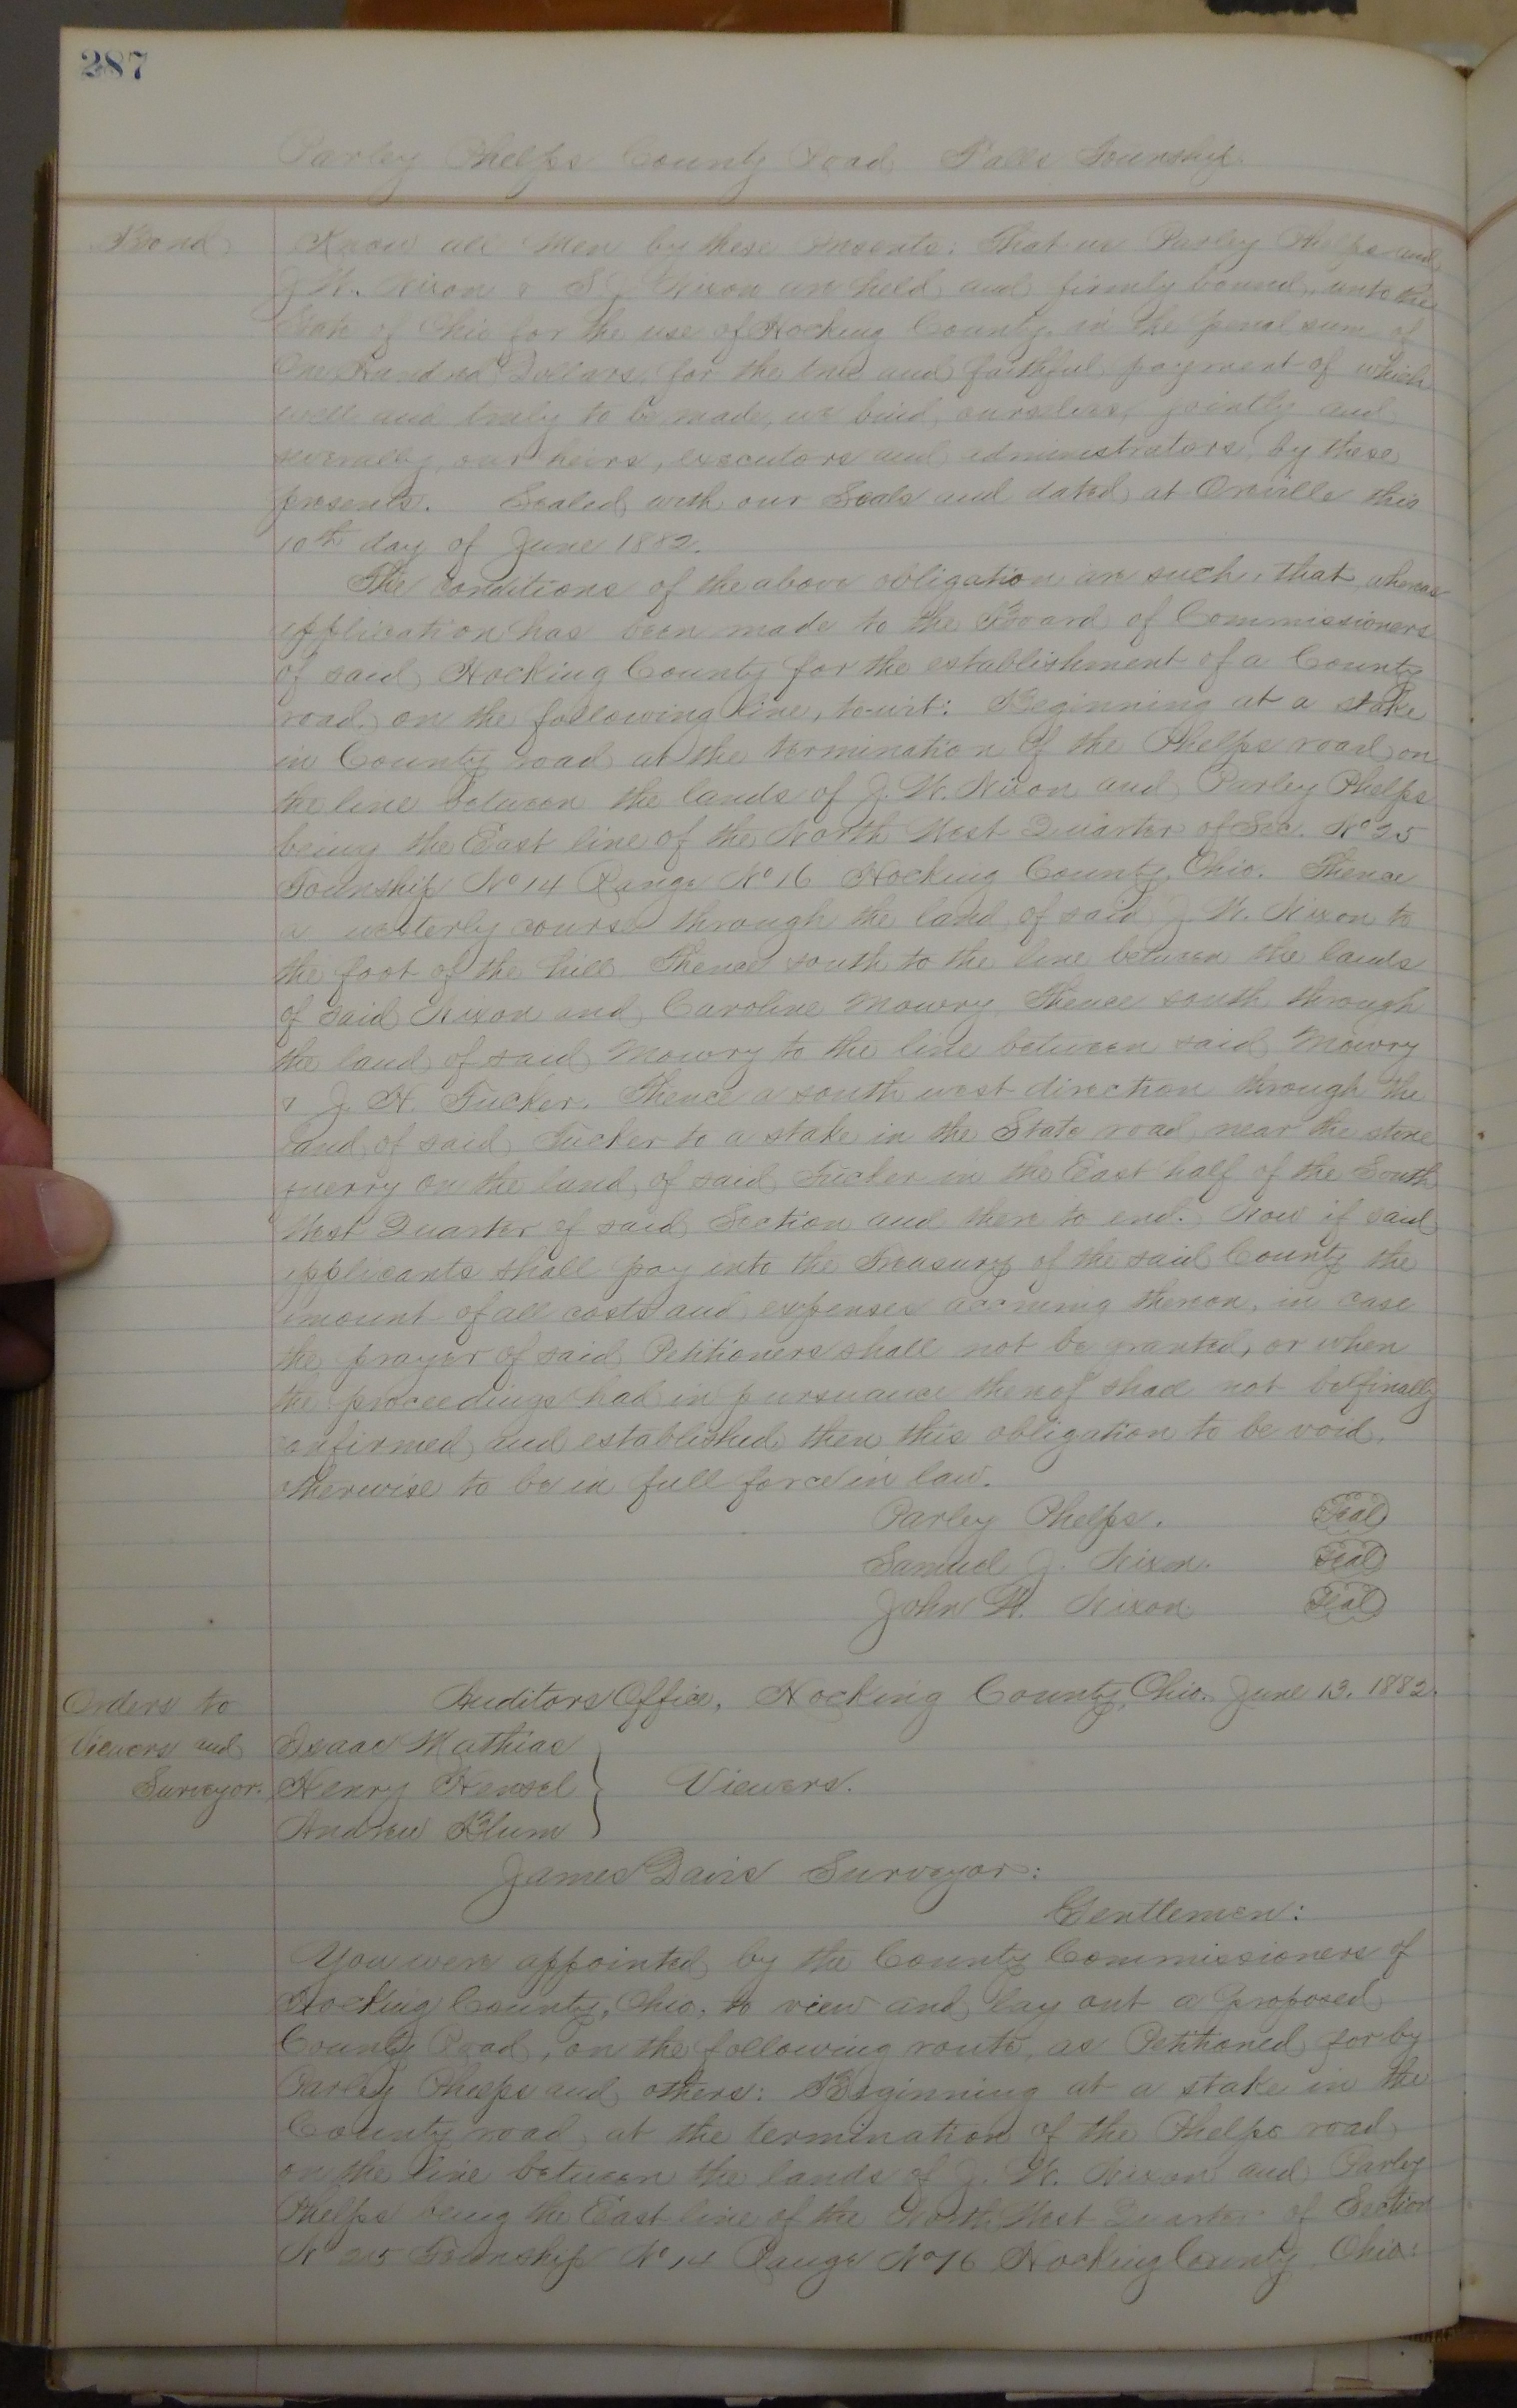 287
Parley Phelps County Road Falls Township.
Bond
Know all Men by these presents: That we Parley Phelps and
J. W. Nixon & S. J. Nixon are held and firmly bound, unto the
State of Ohio for the use of Hocking County, in the penal sum of
One Hundred Dollars, for the true and faithful payment of which
well and truly to be made, we bind, ourselves, jointly and
severally, our heirs, executors and administrators, by these
presents. Sealed with our Seals and dated at Oreville this
10th day of June 1882.
The conditions of the above obligation are such, that, whereas
application has been made to the Board of Commissioners
of said Hocking County for the establishment of a County
road, on the following line, to-wit: Beginning at a stake
in County road at the termination of the Phelps road on
the line between the lands of J. W. Nixon and Parley Phelps
being the East line of the North West Quarter of Sec. No 25
Township No 14 Range No 16 Hocking County, Ohio. Thence
a westerly course through the land of said J. W. Nixon to
the foot of the hill Thence south to the line between the lands
of said Nixon and Caroline Mowry Thence south through
the land of said Mowry to the line between said Mowry
& J. H. Tucker. Thence a south west direction through the
land of said Tucker to a stake in the State road near the stone
querry on the land of said Tucker in the East half of the South
West Quarter of said Section and there to end. Now if said
applicants shall pay into the Treasury of the said County the
amount of all costs and expenses accruing thereon, in case
the prayer of said Petitioners shall not be granted, or when
the proceedings had in pursuance thereof shall not be finally
confirmed and established then this obligation to be void,
otherwise to be in full force in law.
Parley Phelps. Seal
Samuel J. Nixon. Seal
John W. Nixon Seal
Orders to
Viewers and
Surveyor.
Auditors Office, Hocking County, Ohio. June 13. 1882.
Isaac Mathias
Henry Hensel } Viewers.
Andrew Blum
James Davis Surveyor:
Gentlemen:
You were appointed by the County Commissioners of
Hocking County, Ohio. to view and lay out a proposed
County Road, on the following route, as Petitioned for by
Parley Phelps and others: Beginning at a stake in the
County road at the termination of the Phelps road
on the line between the lands of J. W. Nixon and Parley
Phelps being the East line of the North West Quarter of Section
No 25 Township No 14 Range No 16 Hocking County Ohio: